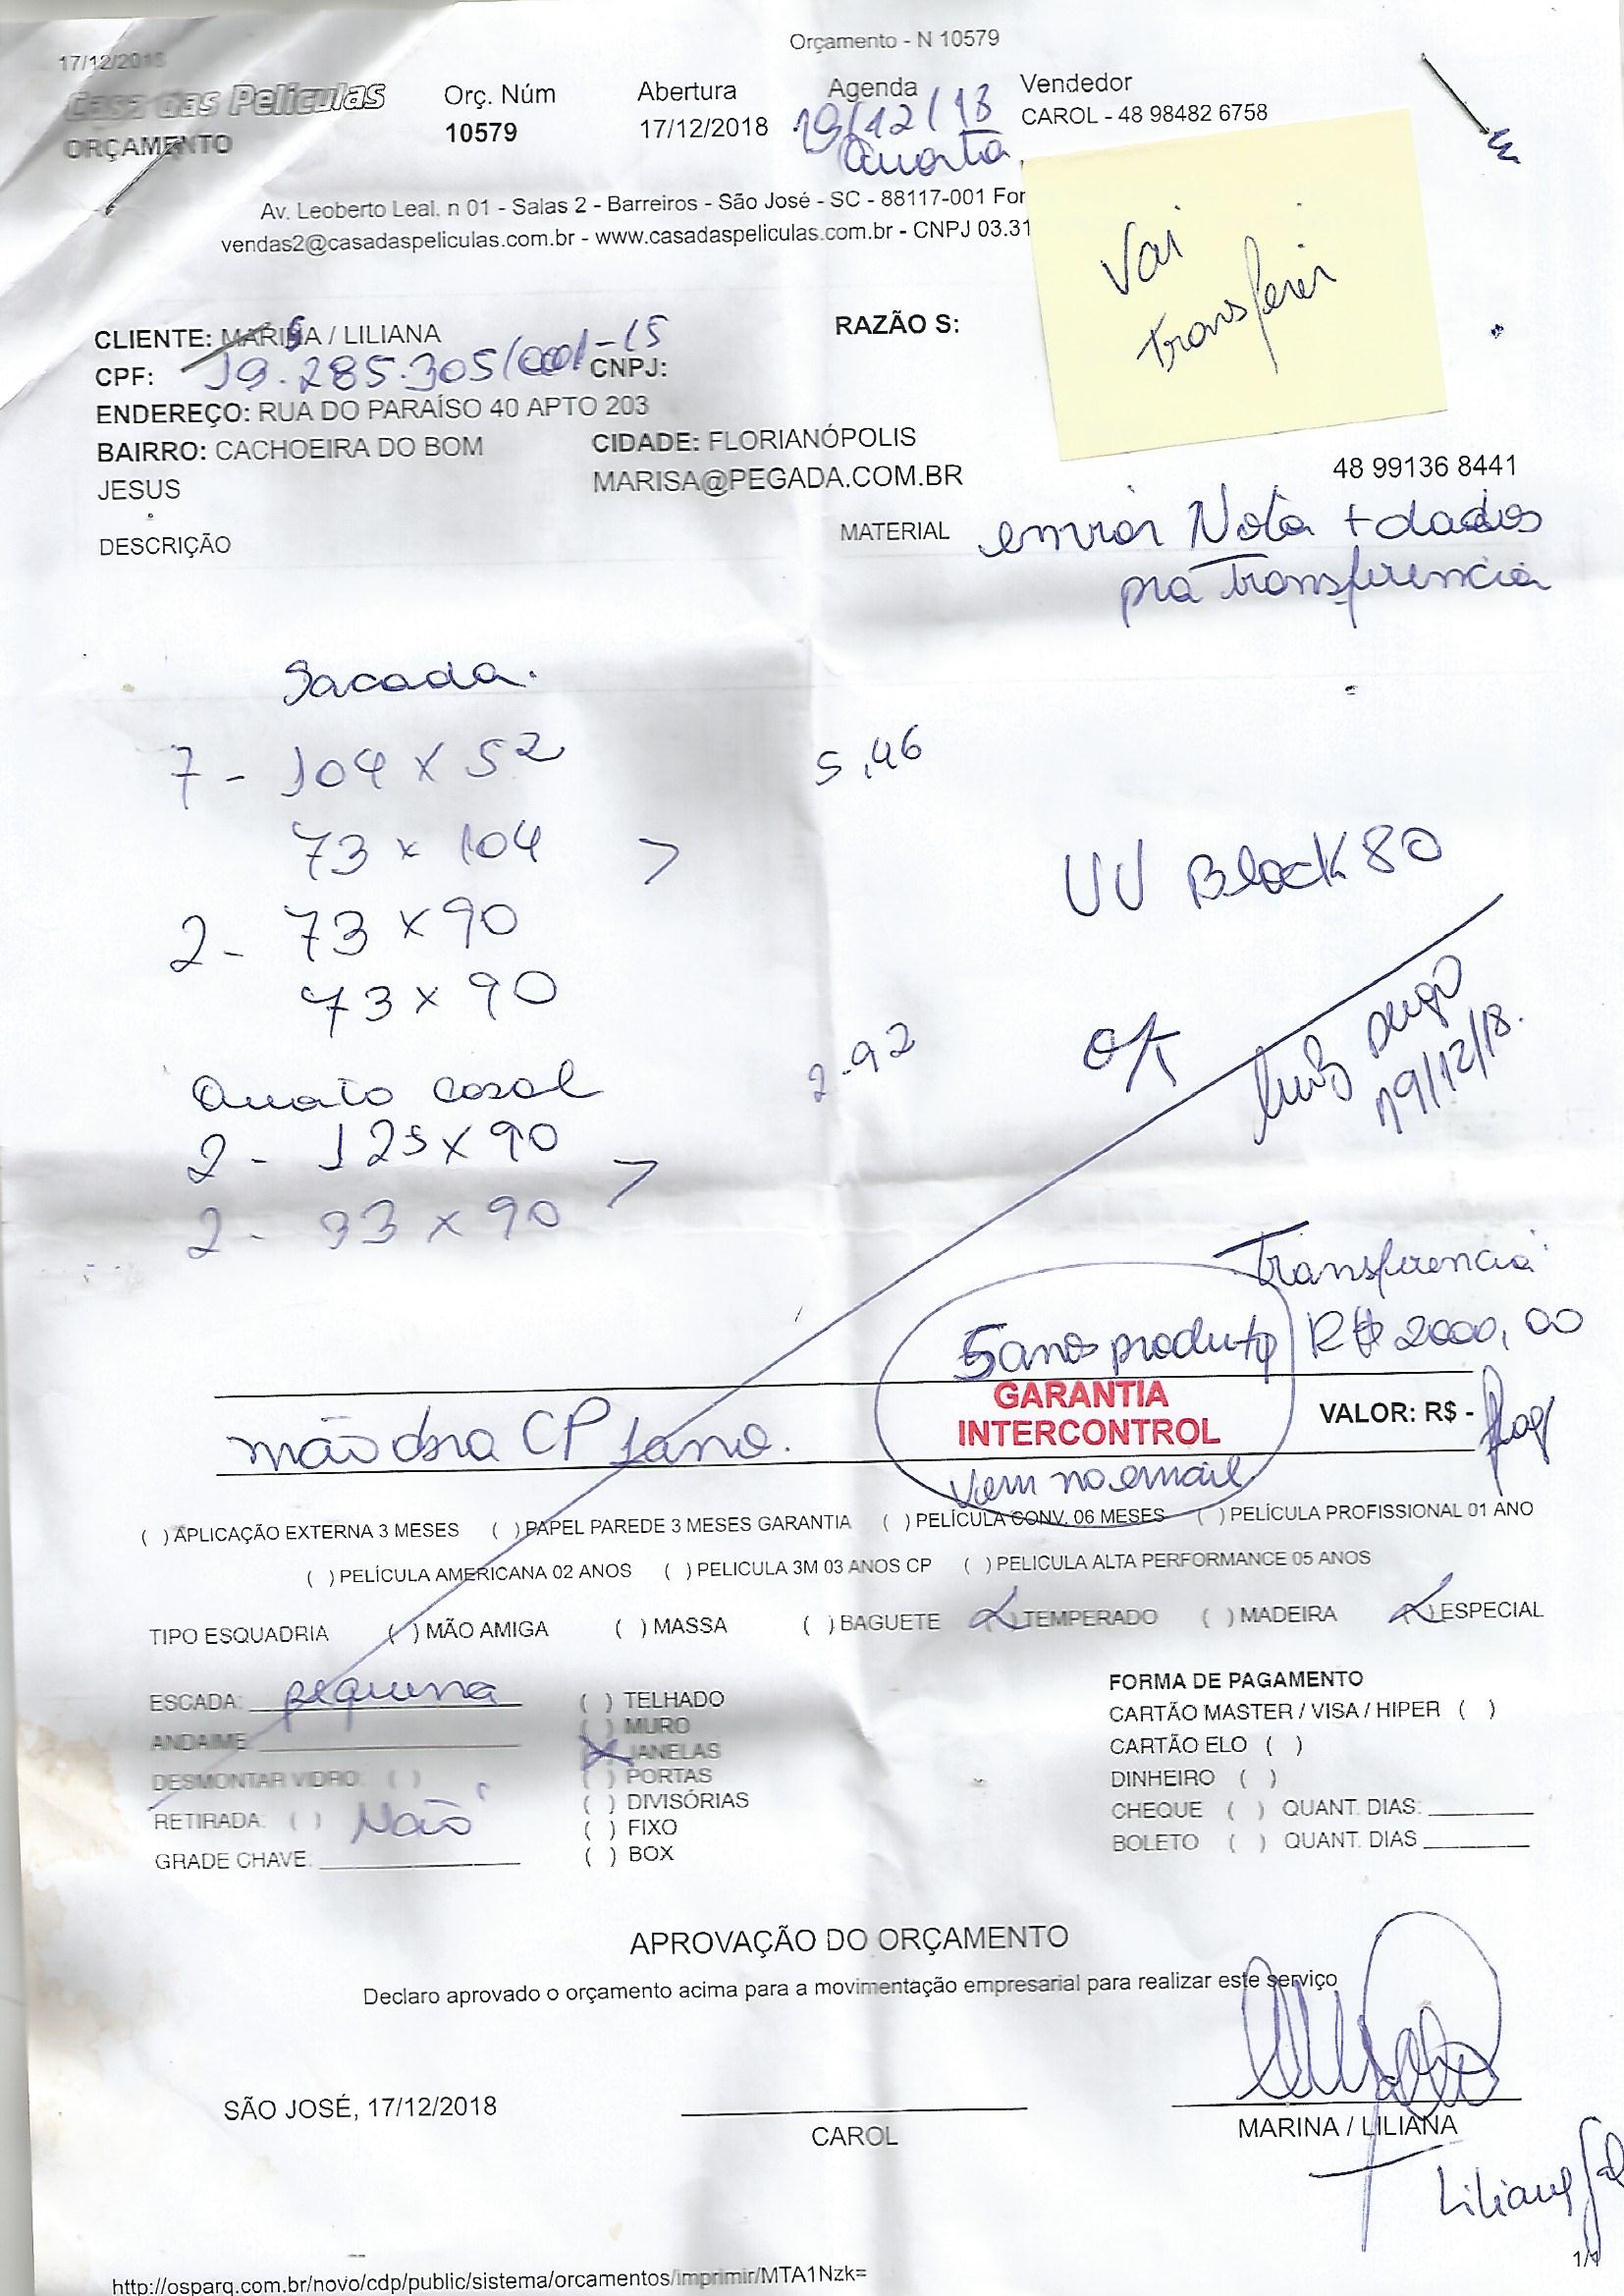 17/12/2018
Orçamento - N 10579
Casa das Películas
ORÇAMENTO
Orç. Núm
10579
Abertura
17/12/2018
Agenda
19/12/18
Quarta
Vendedor
CAROL - 48 98482 6758
Av. Leoberto Leal. n 01 - Salas 2 - Barreiros - São José - SC - 88117-001 For
vendas2@casadaspeliculas.com.br - www.casadaspeliculas.com.br - CNPJ 03.31
Vai
Transferir
CLIENTE: MARISA / LILIANA
RAZÃO S:
CPF: 19.285.305/0001-15 CNPJ:
ENDEREÇO: RUA DO PARAÍSO 40 APTO 203
BAIRRO: CACHOEIRA DO BOM JESUS
CIDADE: FLORIANÓPOLIS
MARISA@PEGADA.COM.BR
48 99136 8441
DESCRIÇÃO
MATERIAL
enviar Nota + dados
pra Transferencia
Sacada.
7 - 104 x 52 5,46
73 x 104 >
UV Block 80
2 - 73 x 90
73 x 90
OK
19/12/18.
Quarto casal 2-92
2 - 125 x 90 >
2 - 33 x 90
Transferencia
5 anos produto R$ 2000,00
GARANTIA
INTERCONTROL
VALOR: R$ -
mão obra CP 1 ano.
Vem no email
( ) APLICAÇÃO EXTERNA 3 MESES ( ) PAPEL PAREDE 3 MESES GARANTIA ( ) PELÍCULA CONV. 06 MESES ( ) PELÍCULA PROFISSIONAL 01 ANO
( ) PELÍCULA AMERICANA 02 ANOS ( ) PELICULA 3M 03 ANOS CP ( ) PELICULA ALTA PERFORMANCE 05 ANOS
TIPO ESQUADRIA ( ) MÃO AMIGA ( ) MASSA ( ) BAGUETE ( ) TEMPERADO ( ) MADEIRA ( ) ESPECIAL
ESCADA: pequena
ANDAIME:
DESMONTAR VIDRO: ( )
RETIRADA: ( ) Não
GRADE CHAVE:
( ) TELHADO
( ) MURO
(X) JANELAS
( ) PORTAS
( ) DIVISÓRIAS
( ) FIXO
( ) BOX
FORMA DE PAGAMENTO
CARTÃO MASTER / VISA / HIPER ( )
CARTÃO ELO ( )
DINHEIRO ( )
CHEQUE ( ) QUANT. DIAS:
BOLETO ( ) QUANT. DIAS
APROVAÇÃO DO ORÇAMENTO
Declaro aprovado o orçamento acima para a movimentação empresarial para realizar este serviço
SÃO JOSÉ, 17/12/2018
CAROL
MARINA / LILIANA
1/1
http://osparq.com.br/novo/cdp/public/sistema/orcamentos/imprimir/MTA1Nzk=